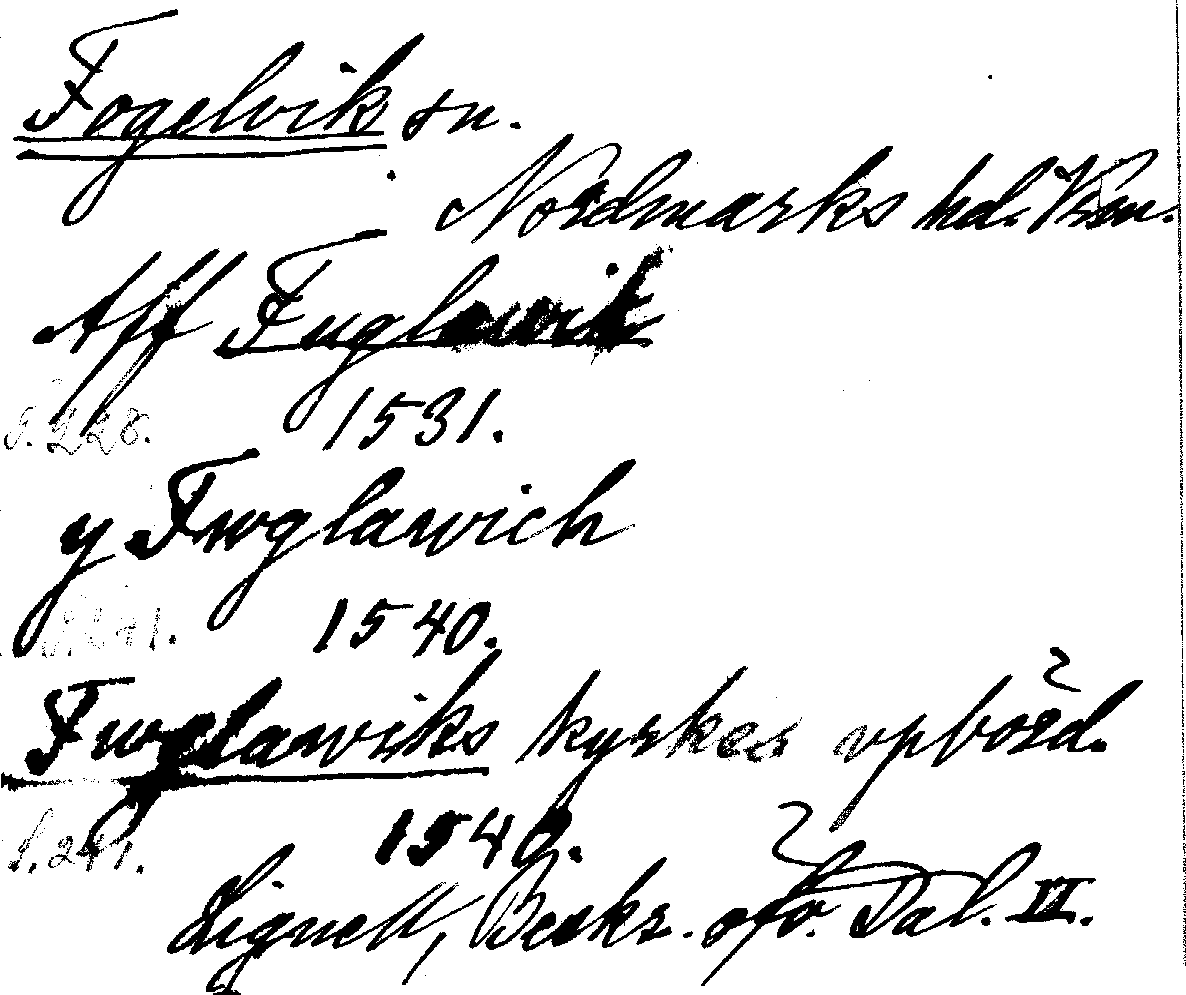 Fogelvik sn.
Nordmarks hd. Vrm.
Aff Fuglawik
S. 228. 1531.
y Fwglawich
S. 241. 1540.
Fwglawiks kyrkes vpbörd.
S. 241. 1540.
Lignell, Beskr. öfv. Dal. II.